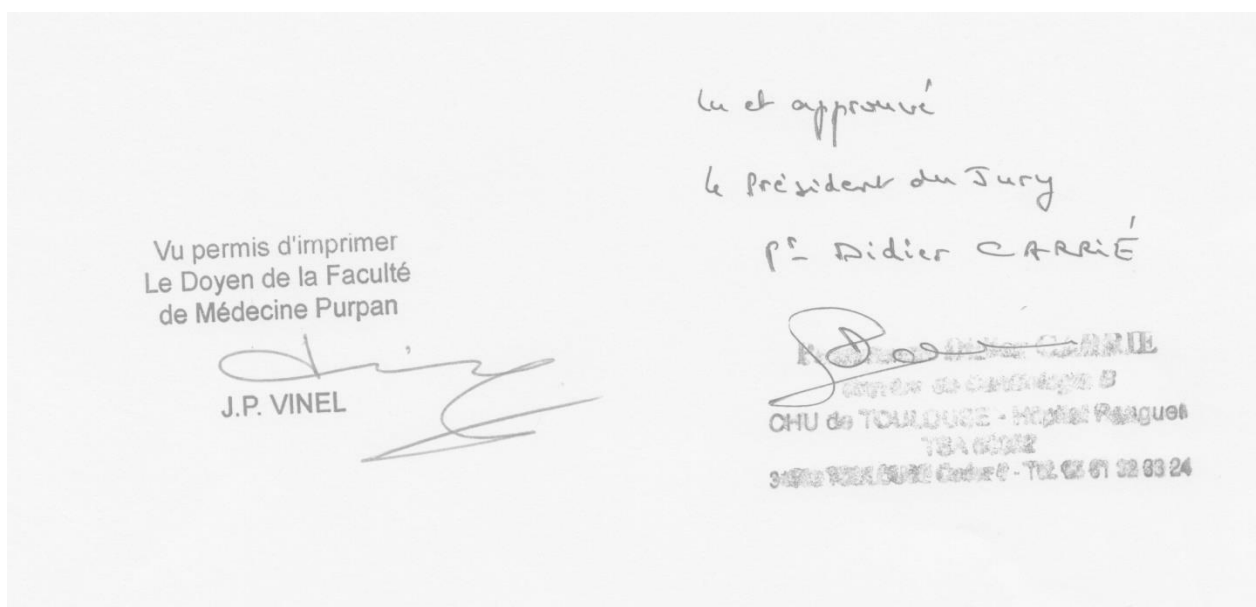 Vu permis d'imprimer
Le Doyen de la Faculté
de Médecine Purpan
J.P. VINEL
lu et approuvé
le Président du Jury
Pr Didier CARRIÉ
Didier CARRIE
de Cardiologie B
CHU de TOULOUSE - Hôpital Rangueil
TSA
TOULOUSE Cedex - Tél. 61 32 33 24